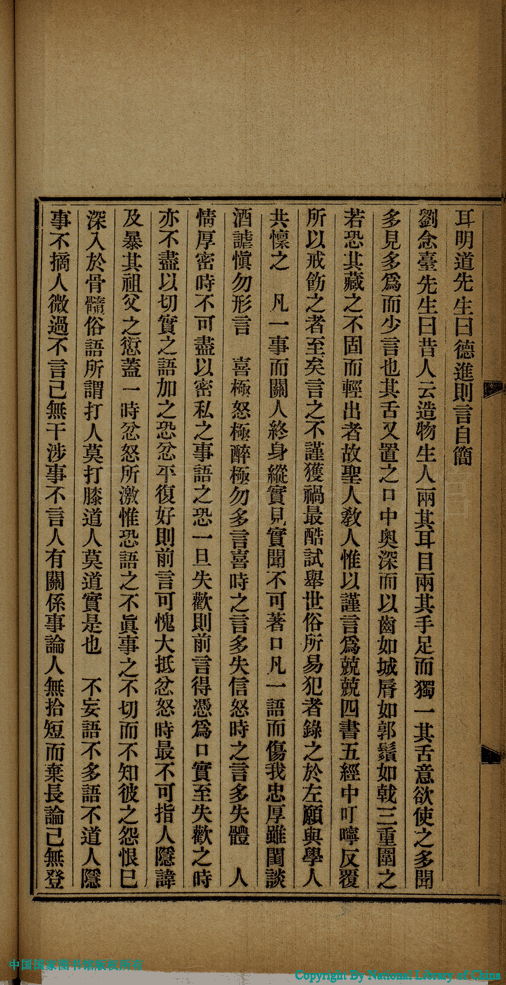 耳明道先生曰德進則言自簡
劉念臺先生曰昔人云造物生人兩其耳目兩其手足而獨一其舌意欲使之多聞
多見多爲而少言也其舌又置之口中奧深而以齒如城脣如郭鬚如戟三重圍之
若恐其藏之不固而輕出者故聖人敎人惟以謹言爲兢兢四書五經中叮嚀反覆
所以戒飭之者至矣言之不謹獲禍最酷試舉世俗所易犯者錄之於左願與學人
共懍之　凡一事而關人終身縱實見實聞不可著口凡一語而傷我忠厚雖閨談
酒謔愼勿形言　喜極怒極醉極勿多言喜時之言多失信怒時之言多失體　人
情厚密時不可盡以密私之事語之恐一旦失歡則前言得憑爲口實至失歡之時
亦不盡以切實之語加之恐忿平復好則前言可愧大抵忿怒時最不可指人隱諱
及暴其祖父之愆蓋一時忿怒所激惟恐語之不眞事之不切而不知彼之怨恨已
深入於骨髓俗語所謂打人莫打膝道人莫道實是也　不妄語不多語不道人隱
事不摘人微過不言己無干涉事不言人有關係事論人無拾短而棄長論己無登
中国国家图书馆版权所有
Copyright By National Library of China